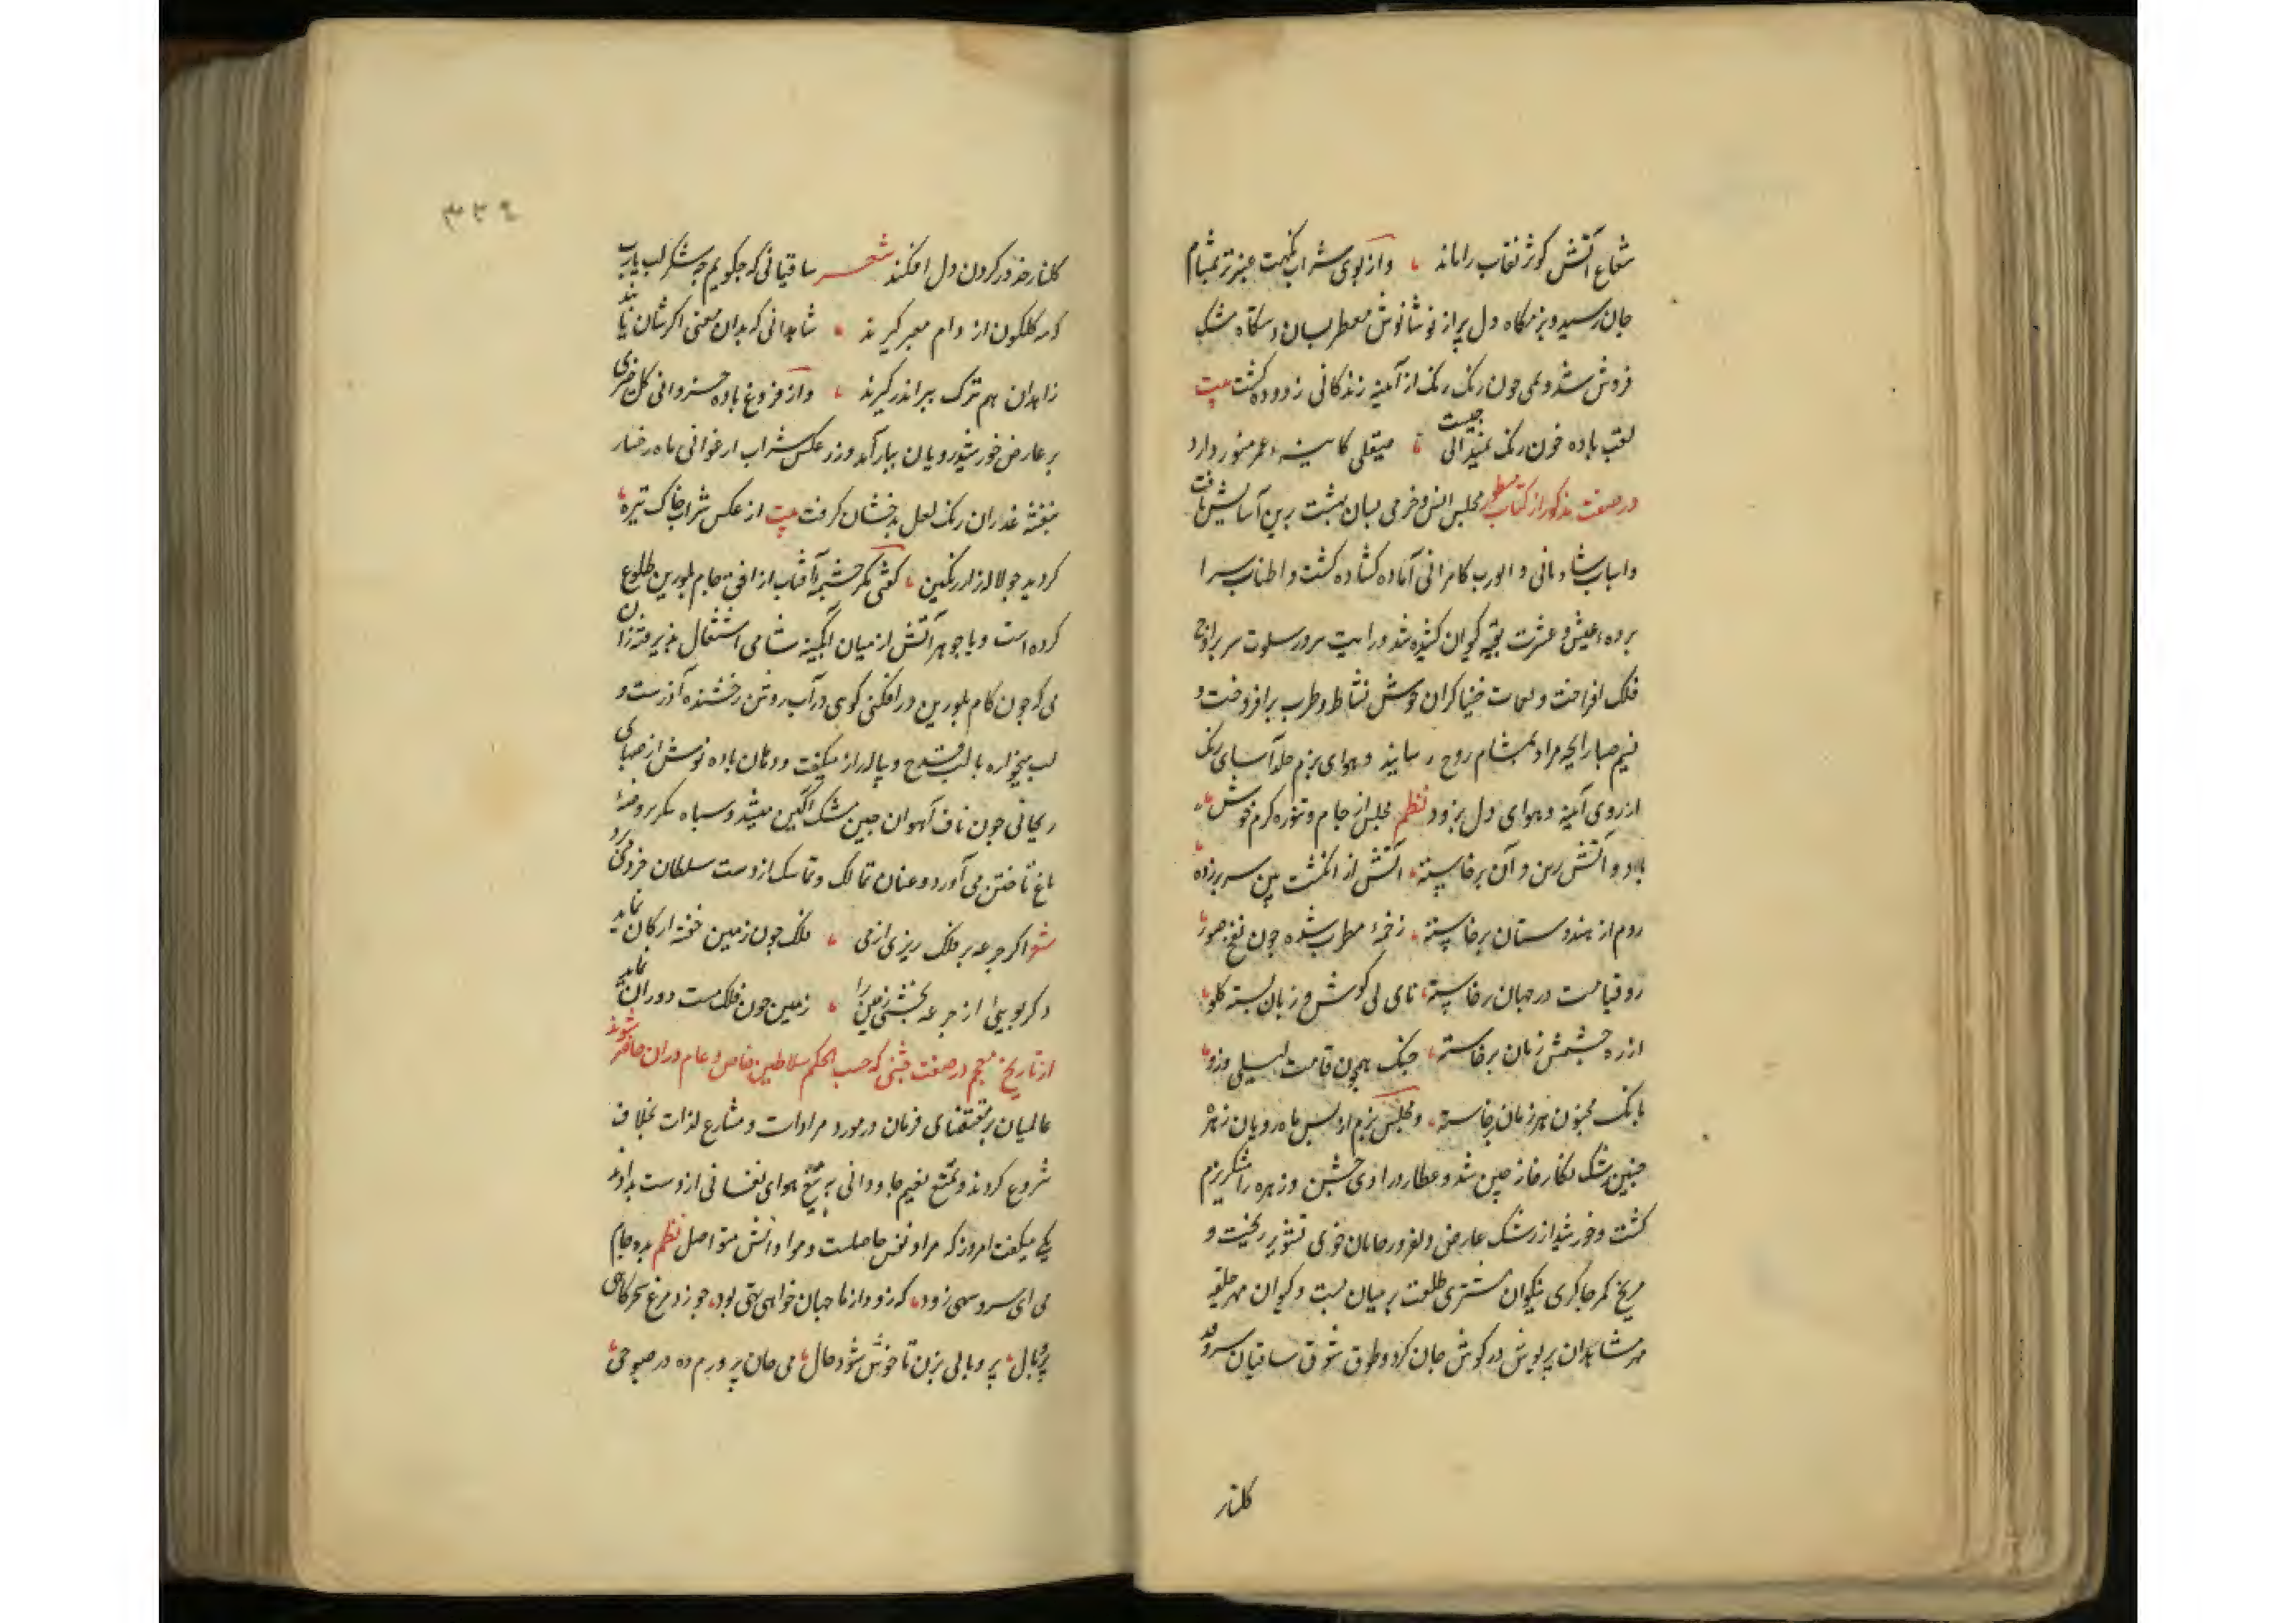 شعاع آتش کوثر نقاب را ماند ، و از بوی شراب نکهت عنبر تر بمشام
جان رسید و بزمگاه دل پر از نوشانوش معطر بسان دستگاه مشک
فروش شد و می چون رنک رنک از آینه زندگانی زدوده گشت بیت
لقب باده خون رنک نمیدانی چیست ، صیقلی کاینه عمر منور دارد
در صفت مذکور از کتاب مجلس انس و خرمی بسان بهشت برین آسایش یافت
و اسباب شادمانی و ابواب کامرانی آماده گشاده گشت و اطناب سرا
پرده عیش و عشرت بقبه کیوان کشیده شد و رایت سرور سلوت سر بر اوج
فلک افراخت و خنیاکران خوش نشاط و طرب برافروخت و
نسیم صبا رایحه مراد بمشام روح رسانید و هوای بزم رنک
از روی آینه و هوای دل بزدود نظم مجلس از جام و تنوره کرم خوش
باد و آتش زین و آن برخاسته ، آتش از انکشت بین سر بر زده
روم از هندوستان برخاسته ، زخمه مطرب شده چون نفخ صور
رو قیامت در جهان برخاسته ، نای بی گوش و زبان بسته کلو
از ره چشمش زبان برخاسته ، چنک همچون قامت لیلی وزو
بانک مجنون هر زمان برخاسته ، و مجلس بزم از بس ماه رویان زهره
جبین رشک نکارخانه چین شد و عطارد راوی جشن و زهره رامشکر بزم
گشت و خورشید از رشک عارض دلفروز جانان خوی تشویر ریخت و
مریخ کمر چاکری نیکوان مشتری طلعت بر میان بست و کیوان مهر حلقه
مهر شاهدان پریوش در کوش جان کرد و طوق شوق ساقیان سرو قد
کلنار
۳۳۹
کلنار خد در کردن دل افکند شعر ساقیانی که چکویم چه شکر لب یارب
که کلکون از دام معبر کیرند ، شاهدانی که بدان معنی اکرشان یابند
زاهدان هم ترک ببر اندر کیرند ، و از فروغ باده خسروانی کل خیری
بر عارض خورشیدرویان ببار آمد و از عکس شراب ارغوانی ماه رخسار
بنفشه عذاران رنک لعل بدخشان کرفت بیت از عکس شراب خاک تیره
کردید چو لاله زار رنکین ، کفتی مکر چشمه آفتاب از افق جام بلورین طلوع
کرده است و یا جوهر آتش از میان آبکینه شامی اشتعال پذیرفته زان
می که چون کام بلورین در افکنی کوی در آب روشن رخشنده آذرست و
لب میخواره با لب قدح و پیاله راز میکفت و دهان باده نوش از صهبای
ریحانی چون ناف آهوان چین مشک آکین میشد و سپاه سکر بر روضه
باغ تاختن می آورد و عنان تمالک و تماسک از دست سلطان خرد می برد
شعر اکر جرعه بر فلک ریزی از می ، فلک چون زمین خفته ارکان نماید
و کر بویی از جرعه بخشی زمین را ، زمین چون فلک مست دوران نماید
از تاریخ معجم در صفت جشنی که حسب الحکم سلاطین خاص و عام در ان حاضر شوند
عالمیان بر مقتضای فرمان در مورد مرادات و مشارع لذات بخلاف
شروع کردند و تمتع نعیم جاودانی به تمتع هوای نفسانی از دست بدادند
یکی میکفت امروز که مراد نفس حاصلست و مواد انس متواصل نظم بده جام
می ای سرو سهی زود ، که زود از ما جهان خواهی تهی بود ، چو زد مرغ سحرکاهی
پر و بال ، پر و بالی بزن تا خوش شود حال ، می جان پرورم ده در صبوحی